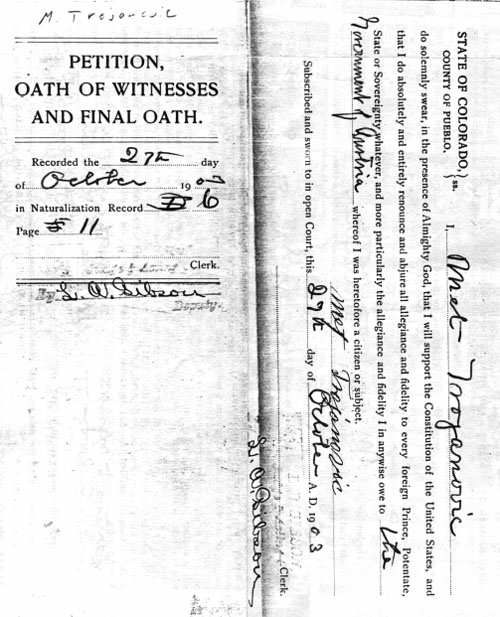 M. Trojanovic
PETITION,
OATH OF WITNESSES
AND FINAL OATH.
Recorded the 27th day
of October 1903
in Naturalization Record 6
Page 11
Clerk.
By L. A. Gibson
Deputy.
STATE OF COLORADO, } ss.
COUNTY OF PUEBLO. I, Met Trojanovic
do solemnly swear, in the presence of Almighty God, that I will support the Constitution of the United States, and
that I do absolutely and entirely renounce and abjure all allegiance and fidelity to every foreign Prince, Potentate,
State or Sovereignty whatever, and more particularly the allegiance and fidelity I in anywise owe to the
Government of Austria whereof I was heretofore a citizen or subject.
Met Trojanovic
Subscribed and sworn to in open Court, this 27th day of October A. D. 1903
Clerk.
L. A. Gibson